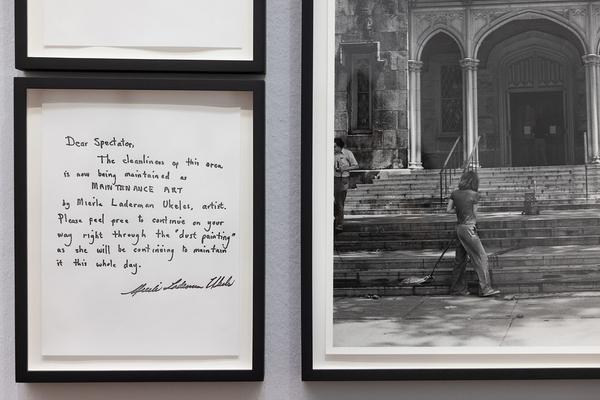 Dear Spectator,
The cleanliness of this area
is now being maintained as
MAINTENANCE ART
by Mierle Laderman Ukeles, artist.
Please feel free to continue on your
way right through the "dust painting"
as she will be continuing to maintain
it this whole day.
Mierle Laderman Ukeles